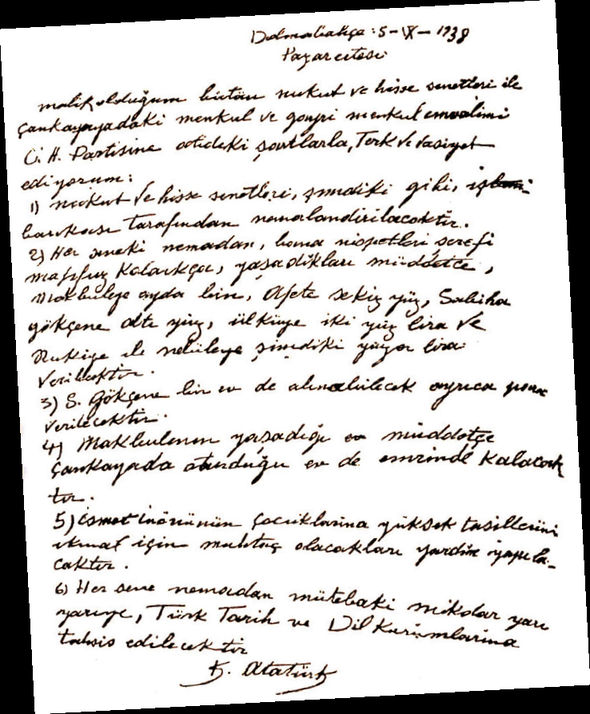 Dolmabahçe: 5-IX-1938
Pazartesi
malik olduğum bütün nukut ve hisse senetleri ile
Çankayayadaki menkul ve gayri menkul emvalimi
C. H. Partisine atideki şartlarla, Terk ve vasiyet
ediyorum:
1) nukut ve hisse senetleri, şimdiki gibi, iş
bankası tarafından nemalandırılacaktır.
2) Her seneki nemadan, bana nispetleri şerefi
mahfuz kaldıkça, yaşadıkları müddetce,
Makbuleye ayda bin, Afete sekiz yüz, Sabiha
gökçene altı yüz, ülküye iki yüz lira ve
Rukiye ile nebileye şimdiki yüzer lira
verilecektir.
3) S. Gökçene bir ev de alınabilecek ayrıca para
verilecektir.
4) Makbulenin yaşadığı ev müddetçe
Çankayada oturduğu ev de emrinde kalacak
tır.
5) ismet inönünün çocuklarına yüksek tasillerini
ikmal için muhtaç olacakları yardım yapıla-
caktır.
6) Her sene nemadan mütebaki mikdar yarı
yarıya, Türk Tarih ve Dil Kurumlarına
tahsis edilecektir
K. Atatürk